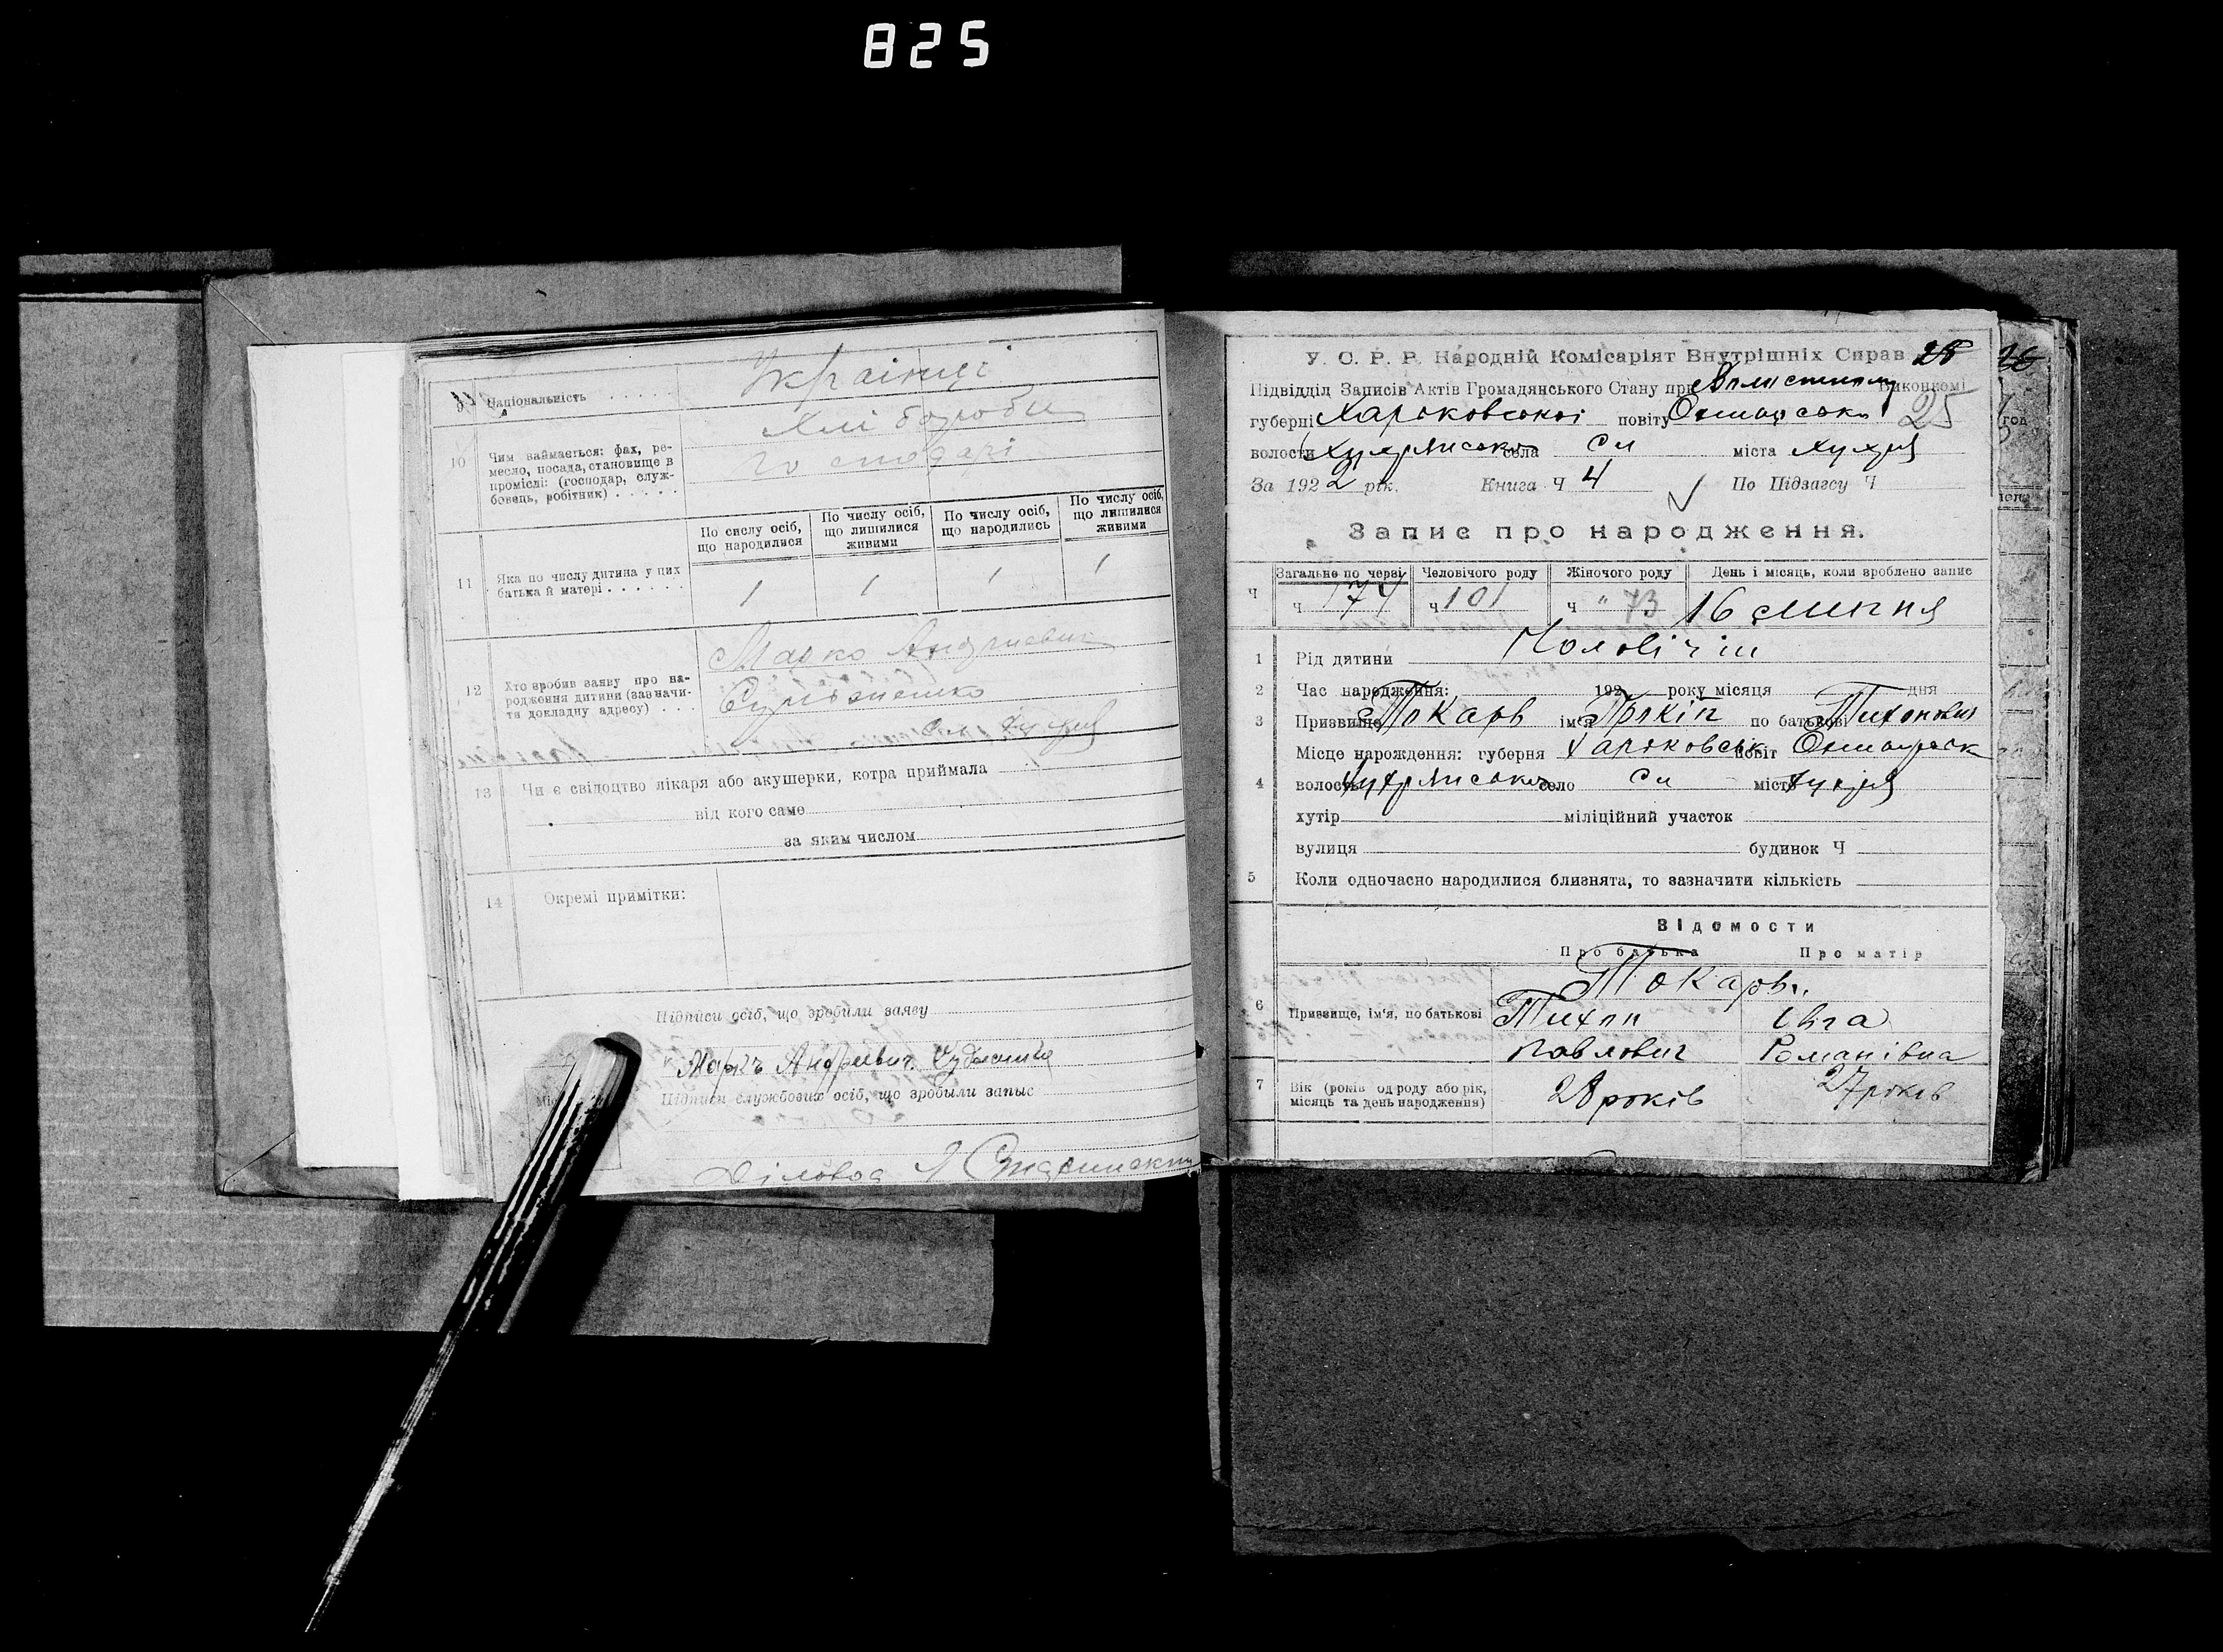 825
9 Національність Українці
10 Чим займається: фах, ре-
месло, посада, становище в
проміслі: (господар, служ-
бовець, робітник)
Хлібороби
господарі
По числу осіб, що народилися
По числу осіб, що лишилися живими
По числу осіб, що народились
По числу осіб, що лишилися живими
11 Яка по числу дитина у цих
батька й матері
1 1 1 1
12 Хто зробив заяву про на-
родження дитини (зазначи-
ти докладну адресу)
Марко Андриевич
13 Чи є свідоцтво лікаря або акушерки, котра приймала
від кого саме
за яким числом
14 Окремі примітки:
Підписи осіб, що зробили заяву
Маркъ Андреевич
Підписи службових осіб, що зробыли запыс
Діловод
У. С. Р. Р. Народній Комісаріят Внутрішніх Справ
Підвідділ Записів Актів Громадянського Стану при Виконкомі
губерні Харьковськоі повіту 25
волости села Сл міста Хухря
За 1922 рік. Книга Ч 4 По Підзагсу Ч
Запис про народження.
Загальне по черзі Человічого роду Жіночого роду День і місяць, коли зроблено запис
Ч ч 174 ч 101 ч " 73 16 липня
1 Рід дитини Чоловічій
2 Час народження: 192 року місяця дня
3 Призвище Токарь ім'я Прокіп по батькові Тихонович
Місце народження: губерня Харьковськ повіт
4 волость село Сл місто Хухря
хутір міліційний участок
вулиця будинок Ч
5 Коли одночасно народилися близнята, то зазначити кількість
Відомости
Про батька Про матір
Токарь
6 Призвище, ім'я, по батькові Тихон Івга
Павлович Романівна
7 Вік (років од роду або рік,
місяць та день народження) 28 років 27 років